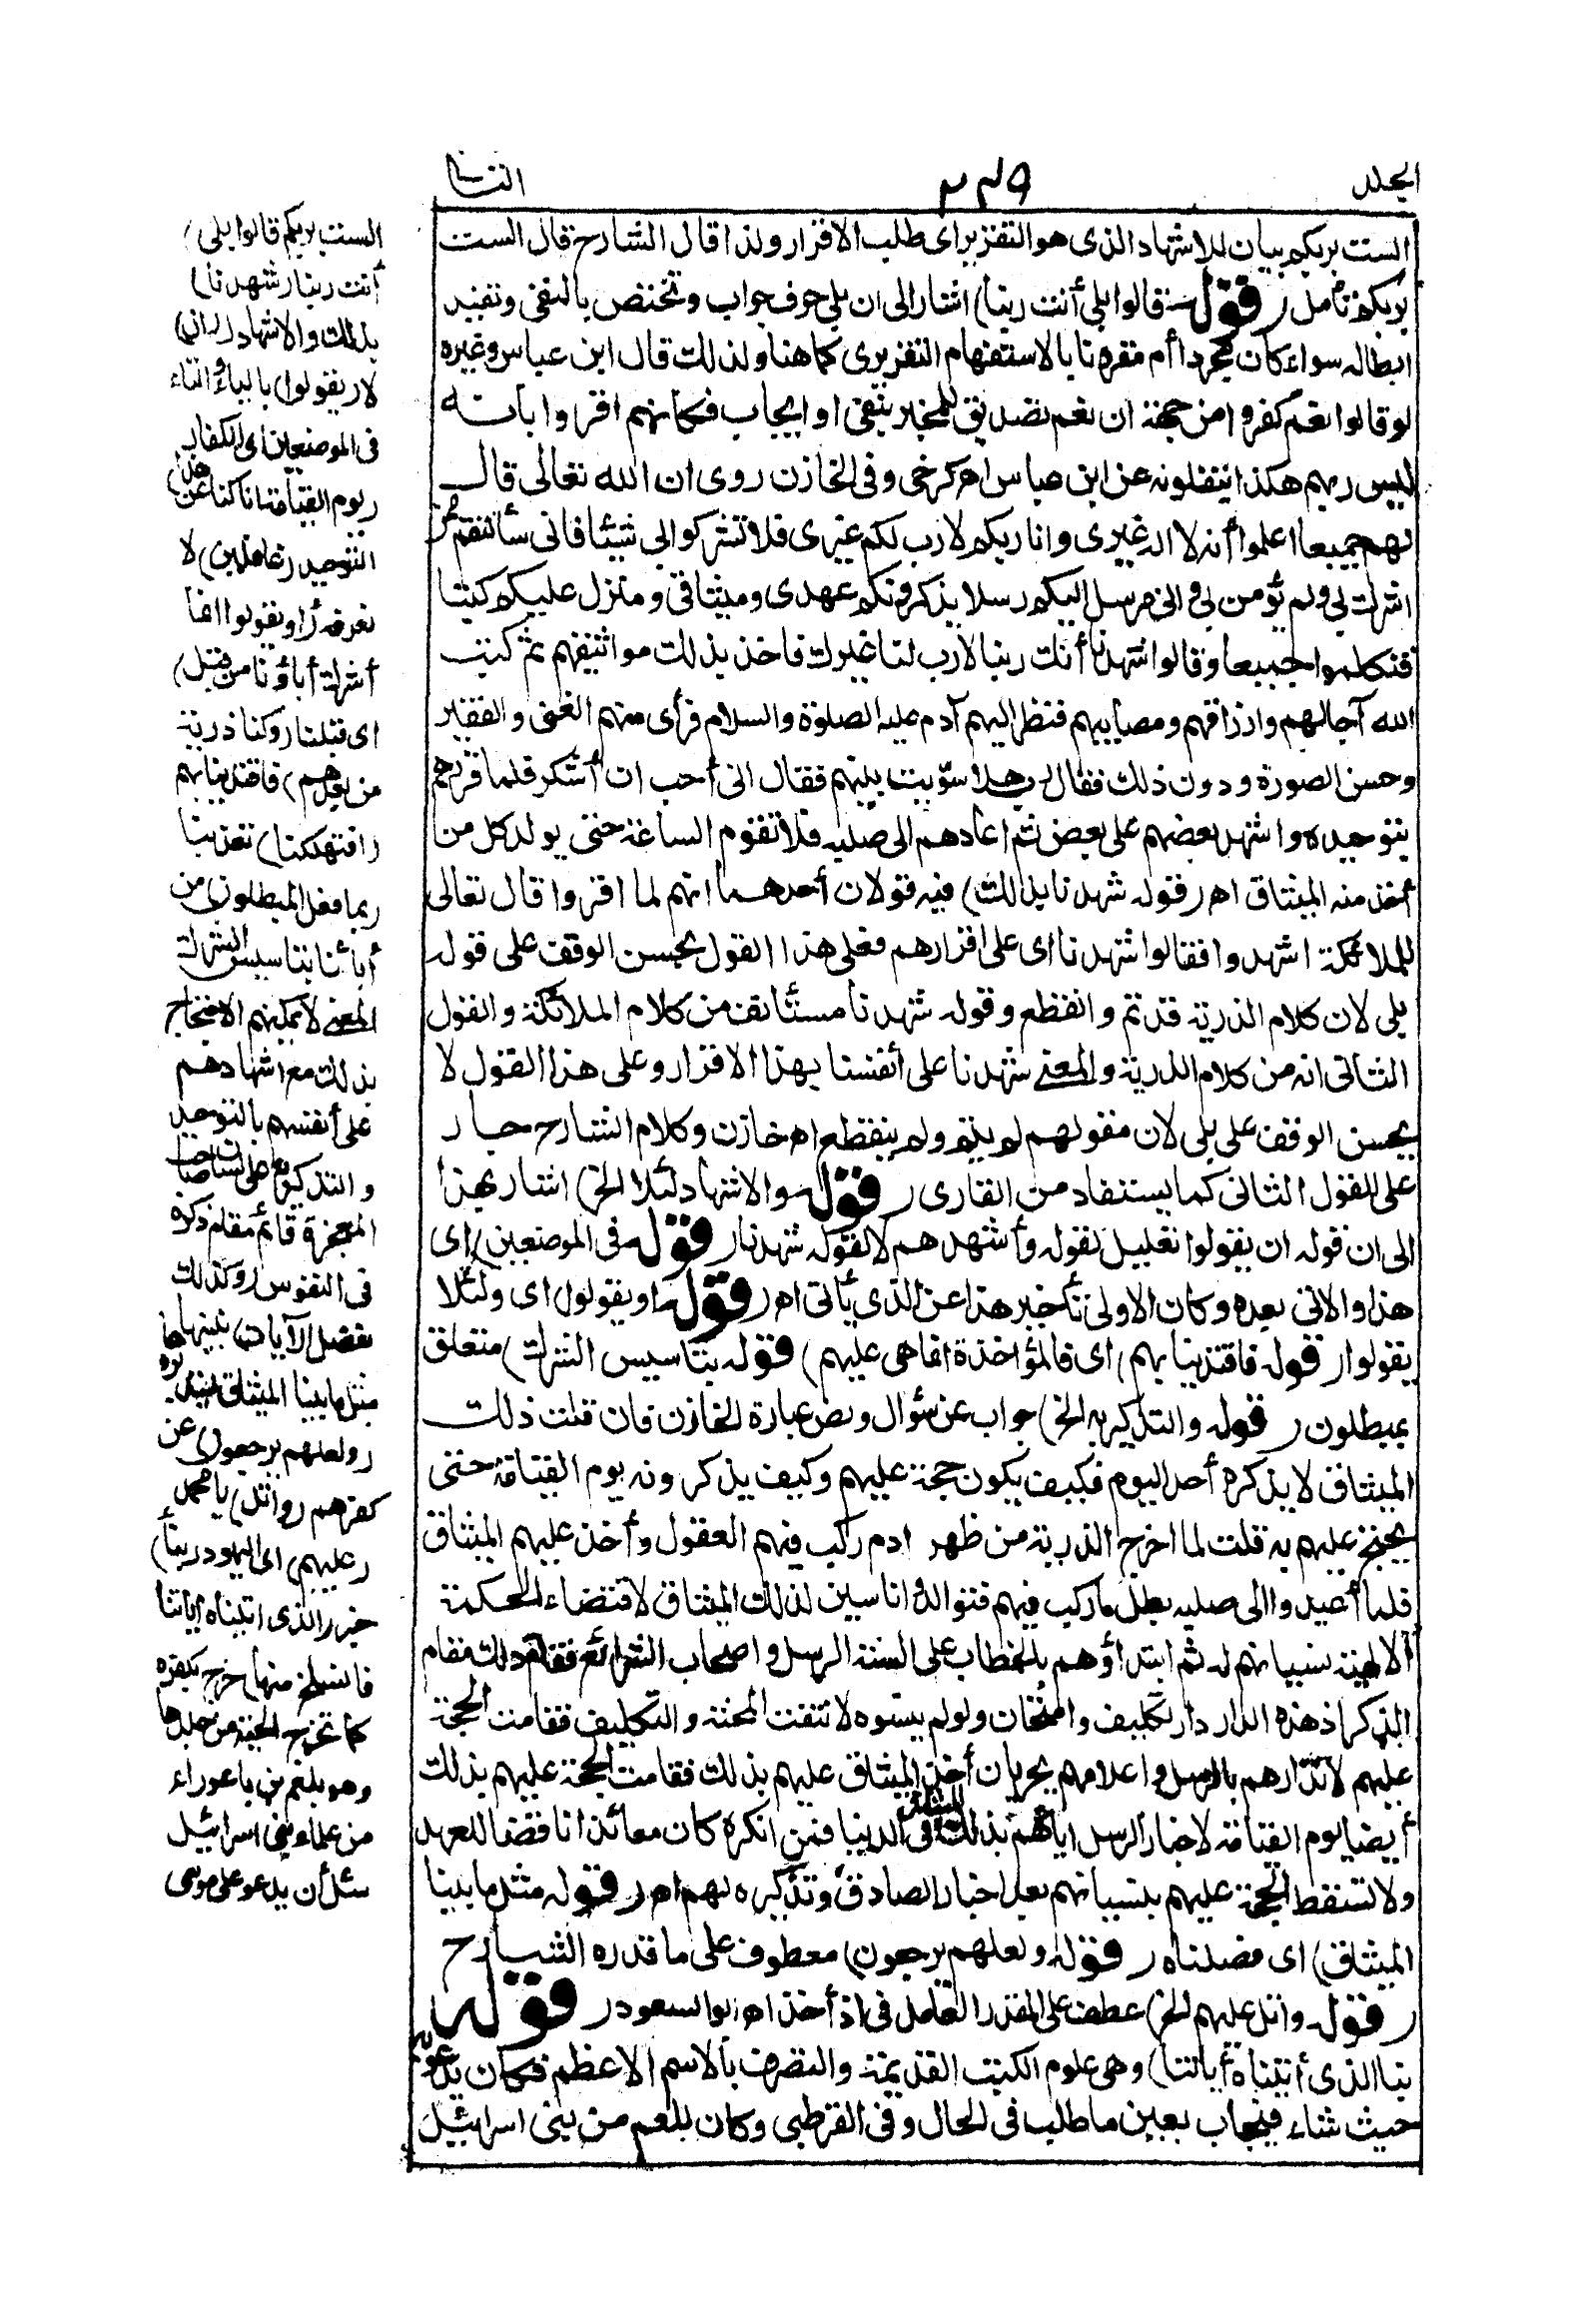 الجلد
٢٤٩
الثا
الست بربكم بيان للاشهاد الذى هو التقرير اى طلب الاقرار ولذا قال الشارح قال الست
بربكم تأمل (قوله قالوا بلى أنت ربنا) اشار الى ان بلى حرف جواب وتختص بالنفى وتفيد
ابطاله سواء كان مجردا أم مقرونا بالاستفهام التقريرى كما هنا ولذلك قال ابن عباس وغيره
لو قالوا نعم كفروا من جهة ان نعم تصديق للمخبر بنفى او ايجاب فكانهم اقروا بأنه
ليس ربهم هكذا ينقلونه عن ابن عباس اه كرخى وفى الخازن روى ان الله تعالى قال
لهم جميعا اعلموا أنه لا اله غيرى وانا ربكم لا رب لكم غيرى فلا تشركوا بى شيئا فانى سأنتقم ممن
اشرك بى ولم يؤمن بى وانى مرسل اليكم رسلا يذكرونكم عهدى وميثاقى ومنزل عليكم كتبا
فتكلموا جميعا وقالوا شهدنا أنك ربنا لا رب لنا غيرك فاخذ بذلك مواثيقهم ثم كتب
الله آجالهم وارزاقهم ومصايبهم فنظر اليهم آدم عليه الصلوة والسلام فرأى منهم الغنى والفقير
وحسن الصورة ودون ذلك فقال رب هلا سويت بينهم فقال انى أحب ان أشكر فلما قررهم
بتوحيده واشهد بعضهم على بعض ثم اعادهم الى صلبه فلا تقوم الساعة حتى يولد كل من
أخذ منه الميثاق اه (قوله شهدنا بذلك) فيه قولان أحدهما انهم لما اقروا قال تعالى
للملائكة اشهدوا فقالوا شهدنا اى على اقرارهم فعلى هذا القول يحسن الوقف على قوله
بلى لان كلام الذرية قد تم وانقطع وقوله شهدنا مستأنف من كلام الملائكة والقول
الثانى انه من كلام الذرية والمعنى شهدنا على أنفسنا بهذا الاقرار وعلى هذا القول لا
يحسن الوقف على بلى لان مقولهم لم يتم ولم ينقطع اه خازن وكلام الشارح جار
على القول الثانى كما يستفاد من القارى (قوله والاشهاد لئلا الخ) اشار بهذا
الى ان قوله ان يقولوا تعليل لقوله وأشهدهم لا لقوله شهدنا (قوله فى الموضعين) اى
هذا والاتى بعده وكان الاولى تأخير هذا عن الذى يأتى اه (قوله او يقولوا) اى ولئلا
يقولوا (قوله فاقتدينا بهم) اى فالمؤاخذة انما هى عليهم) قوله بتأسيس الشرك) متعلق
بمبطلون (قوله والتذكير به الخ) جواب عن سؤال ونص عبارة الخازن فان قلت ذلك
الميثاق لا يذكره أحد اليوم فكيف يكون حجة عليهم وكيف يذكرونه يوم القيامة حتى
يحتج عليهم به قلت لما اخرج الذرية من ظهر ادم ركب فيهم العقول وأخذ عليهم الميثاق
فلما أعيدوا الى صلبه بطل ما ركب فيهم فتوالدوا ناسين لذلك الميثاق لاقتضاء الحكمة
الالهية نسيانهم له ثم ابتدأهم بالخطاب على السنة الرسل واصحاب الشرائع فقام ذلك مقام
الذكر اذ هذه الدار دار تكليف وامتحان ولو لم ينسوه لانتفت المحنة والتكليف فقامت الحجة
عليهم لانذارهم بالرسل واعلامهم بجريان أخذ الميثاق عليهم بذلك فقامت الحجة عليهم بذلك
أيضا يوم القيامة لاخبار الرسل اياهم بذلك الميثاق فى الدنيا فمن انكره كان معاندا ناقضا للعهد
ولا تسقط الحجة عليهم بنسيانهم بعد اخبار الصادق وتذكيره لهم اه (قوله مثل ما بينا
الميثاق) اى فصلناه (قوله ولعلهم يرجعون) معطوف على ما قدره الشارح
(قوله واتل عليهم الخ) عطف على المقدر العامل فى اذ أخذ اه ابو السعود (قوله
نبأ الذى أتيناه أياتنا) وهى علوم الكتب القديمة والتصرف بالاسم الاعظم فكان يدعو به
حيث شاء فيجاب بعين ما طلب فى الحال وفى القرطبى وكان بلعم من بنى اسرائيل
الست بربكم قالوا بلى)
أنت ربنا (شهدنا)
بذلك والاشهاد (ان)
لا (يقولوا) بالياء والتاء
فى الموضعين اى الكفار
(يوم القيامة انا كنا عن هذا)
التوحيد (غافلين) لا
نعرفه (او يقولوا انما
أشرك أباؤنا من قبل)
اى قبلنا (وكنا ذرية
من بعدهم) فاقتدينا بهم
(افتهلكنا) تعذبنا
(بما فعل المبطلون) من
أبائنا بتأسيس الشرك
المعنى لا يمكنهم الاحتجاج
بذلك مع اشهادهم
على أنفسهم بالتوحيد
والتذكير به على لسان صاحب
المعجزة قائم مقام ذكره
فى النفوس (وكذلك
نفصل الآيات) نبينها
مثل ما بينا الميثاق ليتدبروه
(ولعلهم يرجعون) عن
كفرهم (واتل) يا محمد
(عليهم) اى اليهود (نبأ)
خبر (الذى اتيناه اياتنا
فانسلخ منها) خرج بكفره
كما تخرج الحية من جلدها
وهو بلعم بن باعوراء
من علماء بنى اسرائيل
سئل أن يدعو على موسى